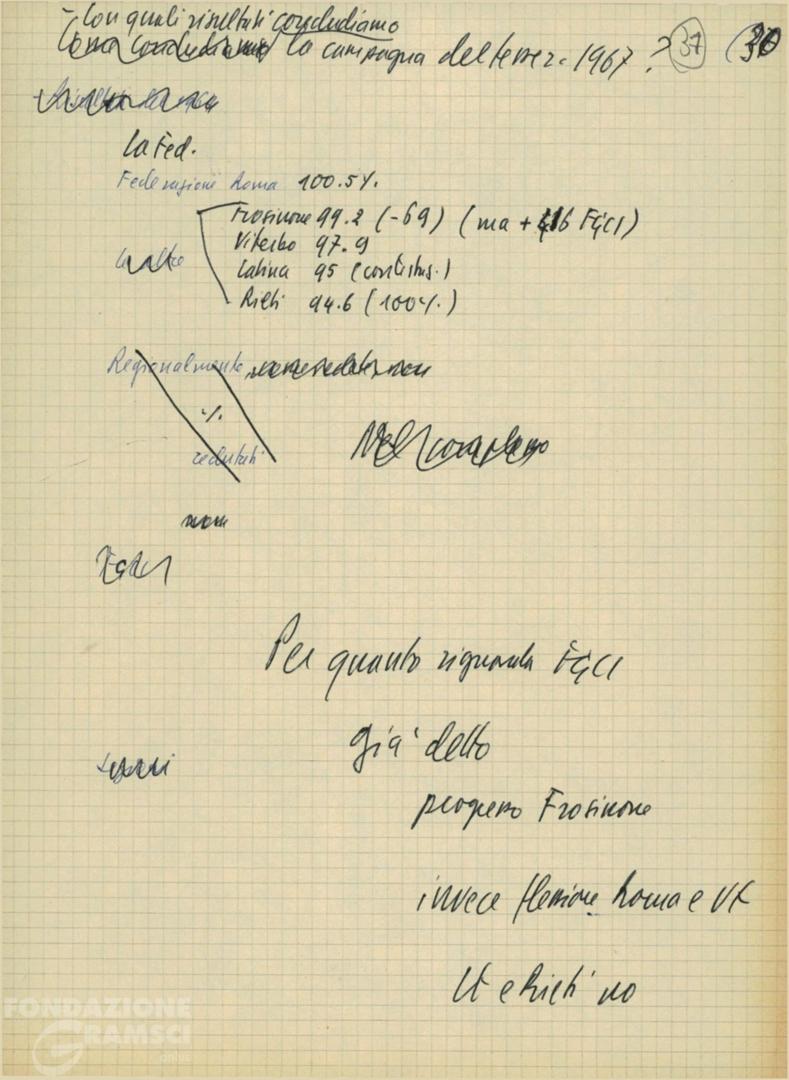 - Con quali risultati concludiamo
Come concludiamo la campagna del tesser. 1967 ? 37 30
La Fed.
Federazione Roma 100.5%
Frosinone 99.2 (-69) (ma + 416 FGCI)
Viterbo 97.9
le altre
Latina 95 (contestus.)
Rieti 94.6 (100%)
Regionalmente
%
reclutati
Nel complesso
non
FGCI
Per quanto riguarda FGCI
già detto
progresso Frosinone
invece flessione Roma e VT
Lt e Rieti no
FONDAZIONE
GRAMSCI
onlus